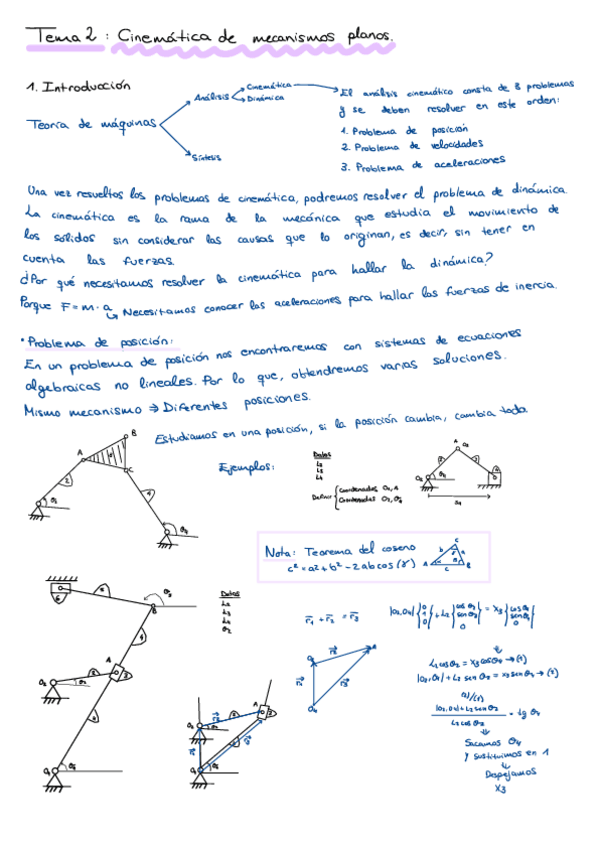 Tema 2: Cinemática de mecanismos planos.
1. Introducción
Teoría de máquinas
Análisis
Cinemática
Dinámica
Síntesis
El análisis cinemático consta de 3 problemas
y se deben resolver en este orden:
1. Problema de posición
2. Problema de velocidades
3. Problema de aceleraciones
Una vez resueltos los problemas de cinemática, podremos resolver el problema de dinámica.
La cinemática es la rama de la mecánica que estudia el movimiento de
los sólidos sin considerar las causas que lo originan, es decir, sin tener en
cuenta las fuerzas.
¿Por qué necesitamos resolver la cinemática para hallar la dinámica?
Porque F = m · a
Necesitamos conocer las aceleraciones para hallar las fuerzas de inercia.
• Problema de posición:
En un problema de posición nos encontraremos con sistemas de ecuaciones
algebraicas no lineales. Por lo que, obtendremos varias soluciones.
Mismo mecanismo ⇒ Diferentes posiciones.
Estudiamos en una posición, si la posición cambia, cambia todo.
Ejemplos:
Datos
L2
L3
L4
Definir
A
B
C
Nota: Teorema del coseno
c² = a² + b² - 2ab cos(γ)
Datos
L2
θ2
r1 + r2 = r3
L2 cos θ2 = x3 cos θ4 → (1)
|O2,O4| + L2 sen θ2 = x3 sen θ4 → (2)
|O2,O4| + L2 sen θ2
L2 cos θ2
= tg θ4
Sacamos θ4
y sustituimos en 1
Despejamos
x3